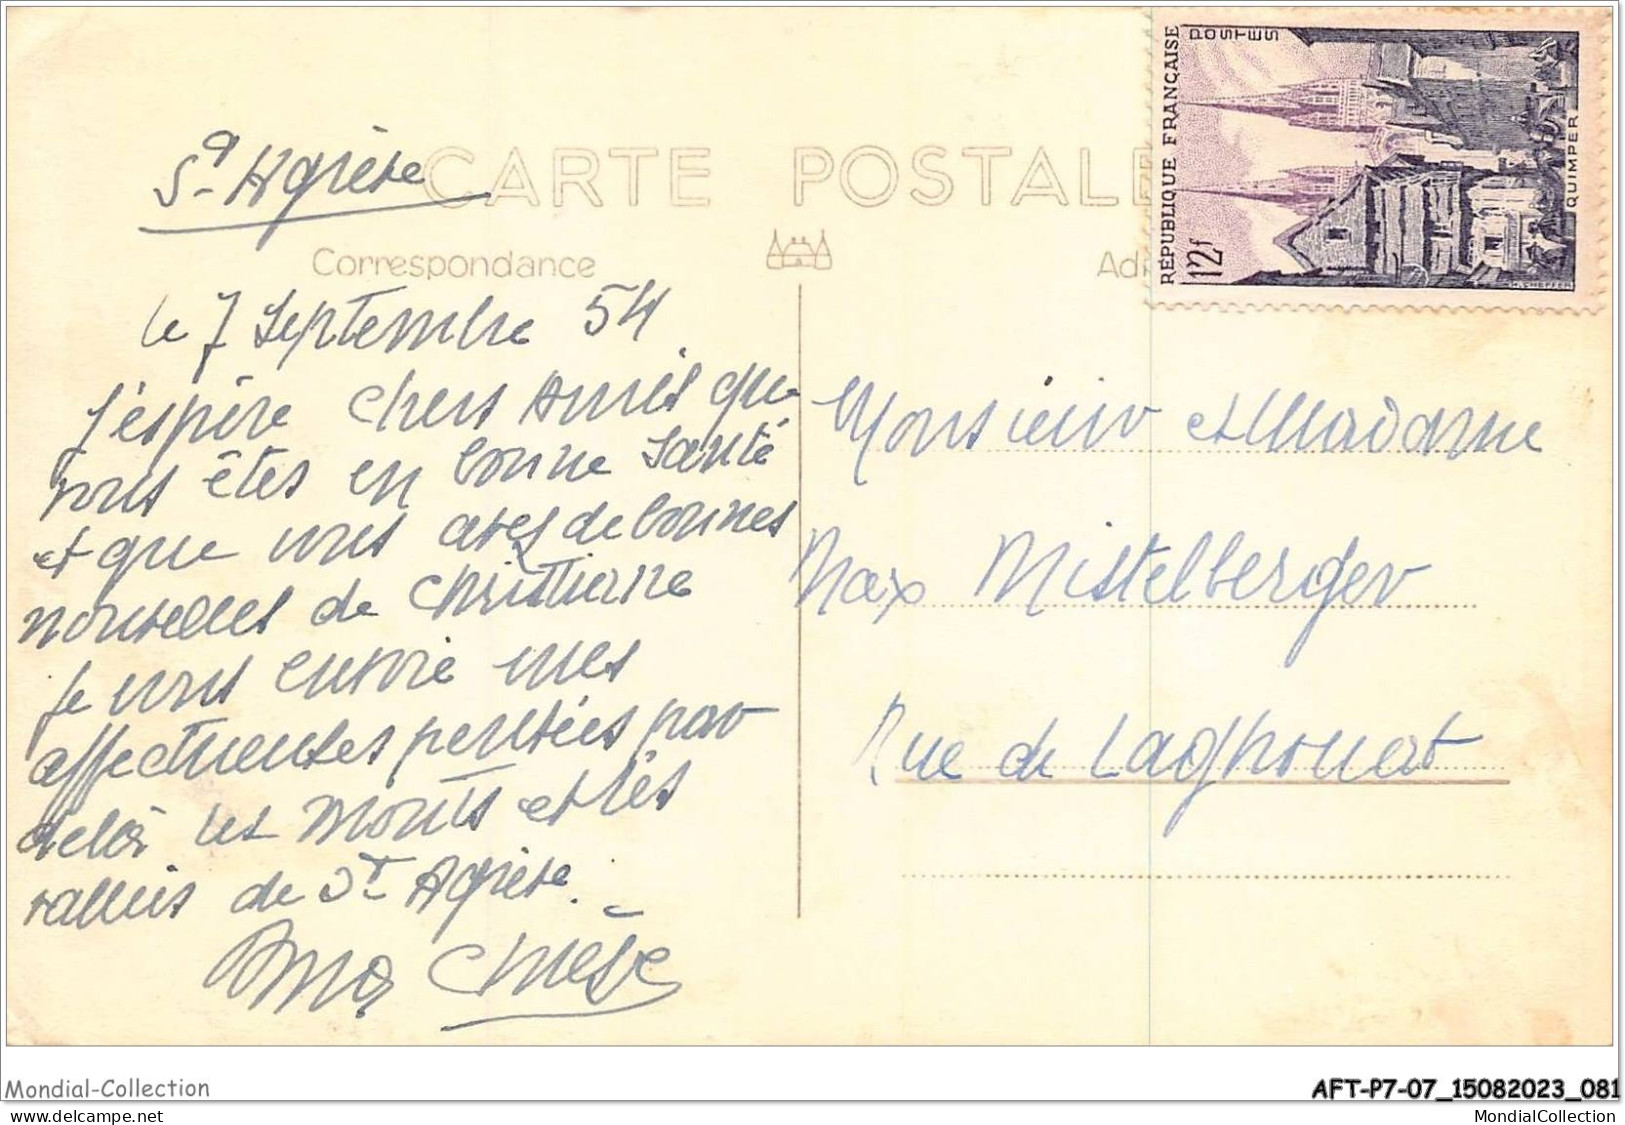 CARTE POSTALE
St Agrève
Correspondance
le 7 Septembre 54
J'espère chers Amis que
vous êtes en bonne santé
et que vous avez de bonnes
nouvelles de Christiane
Je vous envoie mes
affectueuses pensées par
delà les monts et les
vallées de St Agrève.
RÉPUBLIQUE FRANÇAISE
POSTES
12f
QUIMPER
Monsieur et Madame
Max Mistelberger
Rue de Laghouat
Mondial-Collection
AFT-P7-07_15082023_081
MondialCollection